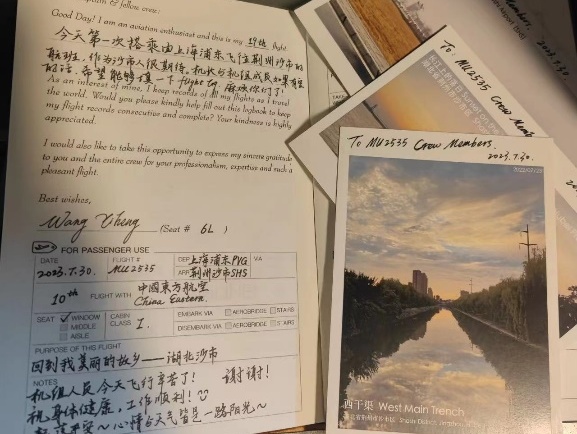 & fellow crew:
Good Day! I am an aviation enthusiast and this is my 19th flight.
今天第一次搭乘由上海浦东飞往荆州沙市的
航班,作为沙市人很期待,机长与机组成员如果有空
的话,希望能够填一下 flight log 麻烦你们了!
As an interest of mine, I keep records of all my flights as I travel
the world. Would you please kindly help fill out this logbook to keep
my flight records consecutive and complete? Your kindness is highly
appreciated.
I would also like to take this opportunity to express my sincere gratitude
to you and the entire crew for your professionalism, expertise and such a
pleasant flight.
Best wishes,
Wang Yiheng (Seat # 6L )
FOR PASSENGER USE
DATE FLIGHT # DEP 上海浦东PVG VIA
2023.7.30. MU2535 ARR 荆州沙市SHS
10th FLIGHT WITH 中国東方航空
China Eastern.
SEAT ✓ WINDOW CABIN I. EMBARK VIA AEROBRIDGE STAIRS
MIDDLE CLASS DISEMBARK VIA AEROBRIDGE STAIRS
AISLE
PURPOSE OF THIS FLIGHT
回到我美丽的故乡——湖北沙市
NOTES
机组人员今天飞行辛苦了! 谢谢!
祝身体健康,工作顺利!
心情与天气皆是一路阳光~
2023.7.30.
To MU2535 Crew Memb
To MU2535 Crew Members.
2023.7.30.
2022/07/20
西干渠 West Main Trench